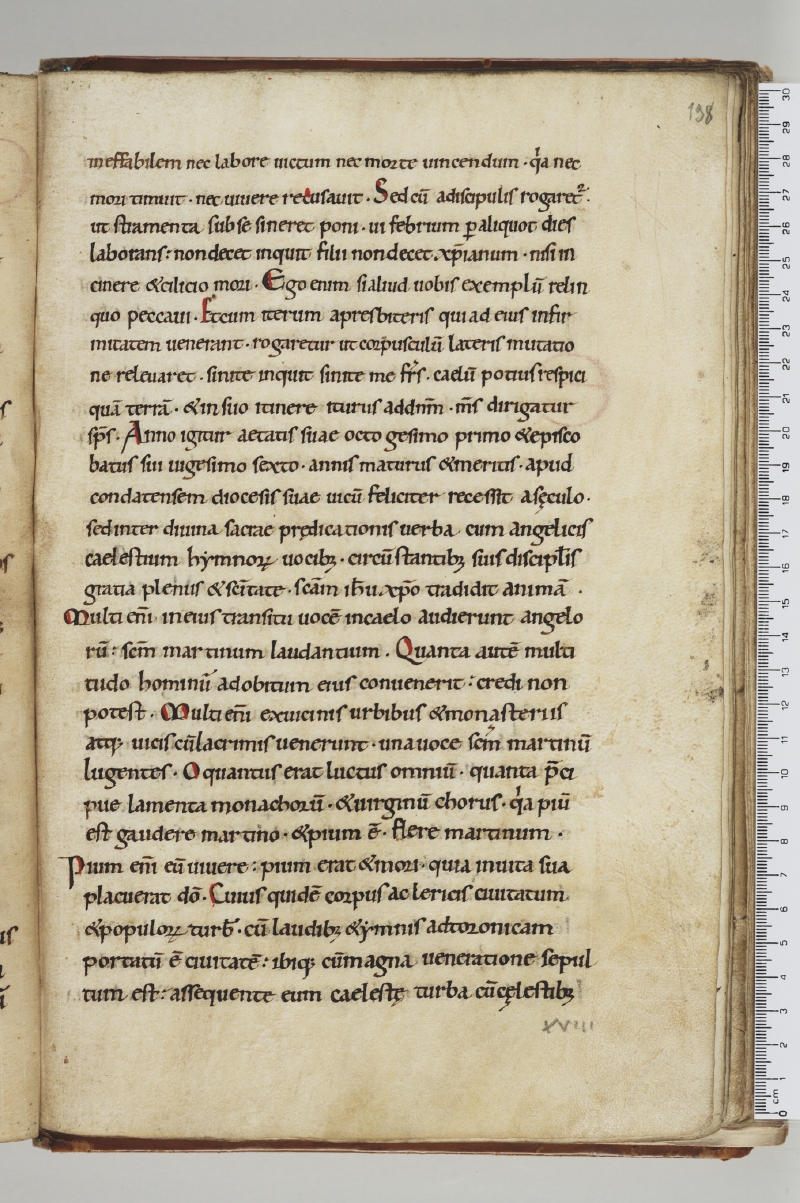 198
ineffabilem nec labore uictum nec morte uincendum · qa nec
mori timuit · nec uiuere recusauit · Sed cū adiscipulis rogaret᷑
ut stramenta sub se sineret poni · ui febrium ꝑ aliquot dies
laborans: non decet inquit filii non decet xp̄ianum · nisi in
cinere & cilicio mori · Ego enim si aliud uobis exemplū relin
quo peccaui · Et cum iterum apresbiteris qui ad eius infir
mitatem uenerant · rogaretur ut corpusculū lateris mutatio
ne releuaret · sinite inquit sinite me frs̄ · caelū potius respici
quā terrā · & in suo itinere iturus ad dnm̄ · ms̄ dirigatur
sps̄ · Anno igitur aetatis suae octogesimo primo & episco
batus sui uigesimo sexto · annis maturus & meritis · apud
condatensem diocesis suae uicū feliciter recessit asęculo ·
sed inter diuina sacrae prędicationis uerba cum angelicis
caelestium hymnoꝝ uocibꝫ · circūstantibꝫ suis discipl̄is
gratia plenus & scītate · scām ihū xp̄o tradidit animā ·
Multi enī in eius transitu uocē in caelo audierunt angelo
rū: scm̄ martinum laudantium · Quanta autē multi
tudo hominū ad obitum eius conuenerit: credi non
potest · Multi enī exuicinis urbibus & monasteriis
atqꝫ uicis cū lacrimis uenerunt · una uoce scm̄ martinū
lugentes · O quantus erat luctus omniū · quanta p̄ci
pue lamenta monachorū · & uirginū chorus · qa piū
est gaudere martino · & pium ē · flere martinum ·
Pium enī eū uiuere: pium erat & mori · quia in uita sua
placuerat dō · Cuius quidē corpus aclericis ciuitatum
& populoꝝ turb̄ · cū laudibꝫ & ymnis ad toronicam
portatū ē ciuitatē: ibiqꝫ cū magna ueneratione sepul
tum est: assequente eum caelestę turba cū cęlestibꝫ
XVIII